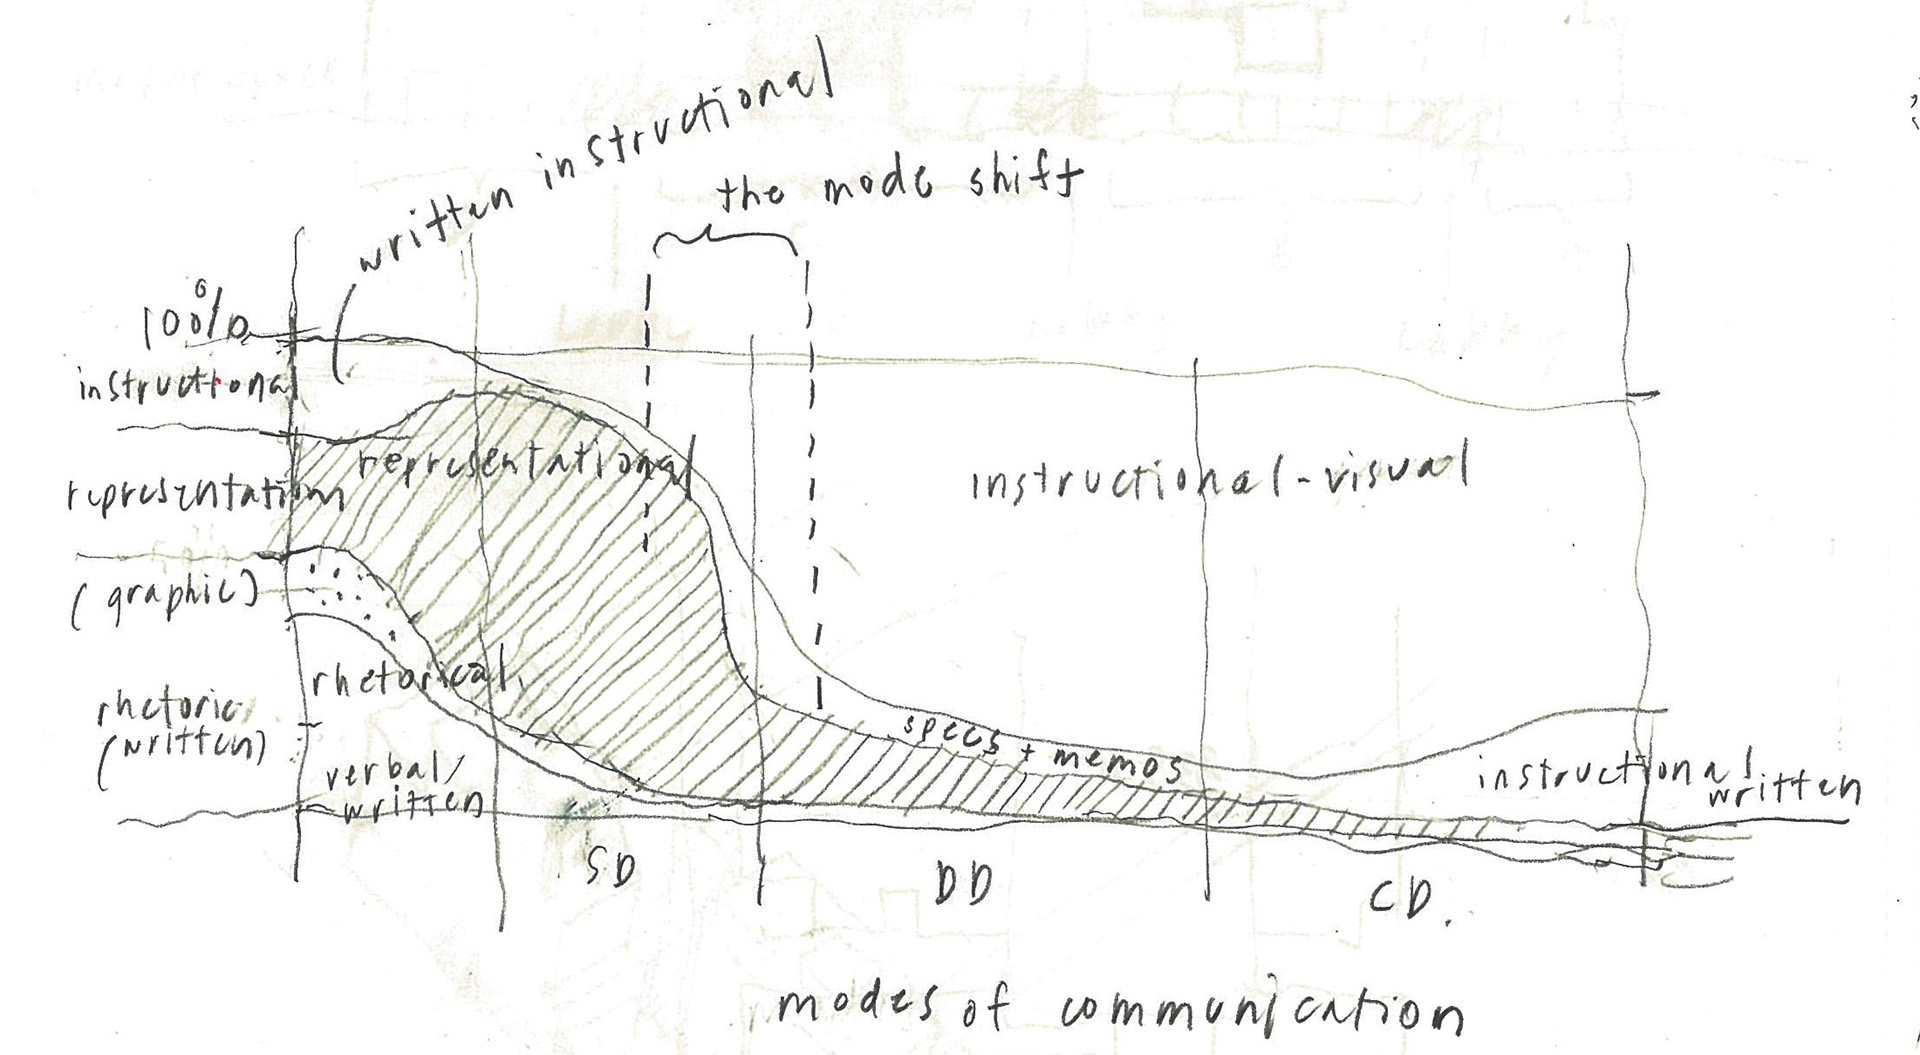 written instructional
the mode shift
100%
instructional
representational
representation
instructional-visual
(graphic)
rhetorical
rhetoric
(written)
verbal/
written
specs + memos
instructional
written
SD
DD
CD.
modes of communication